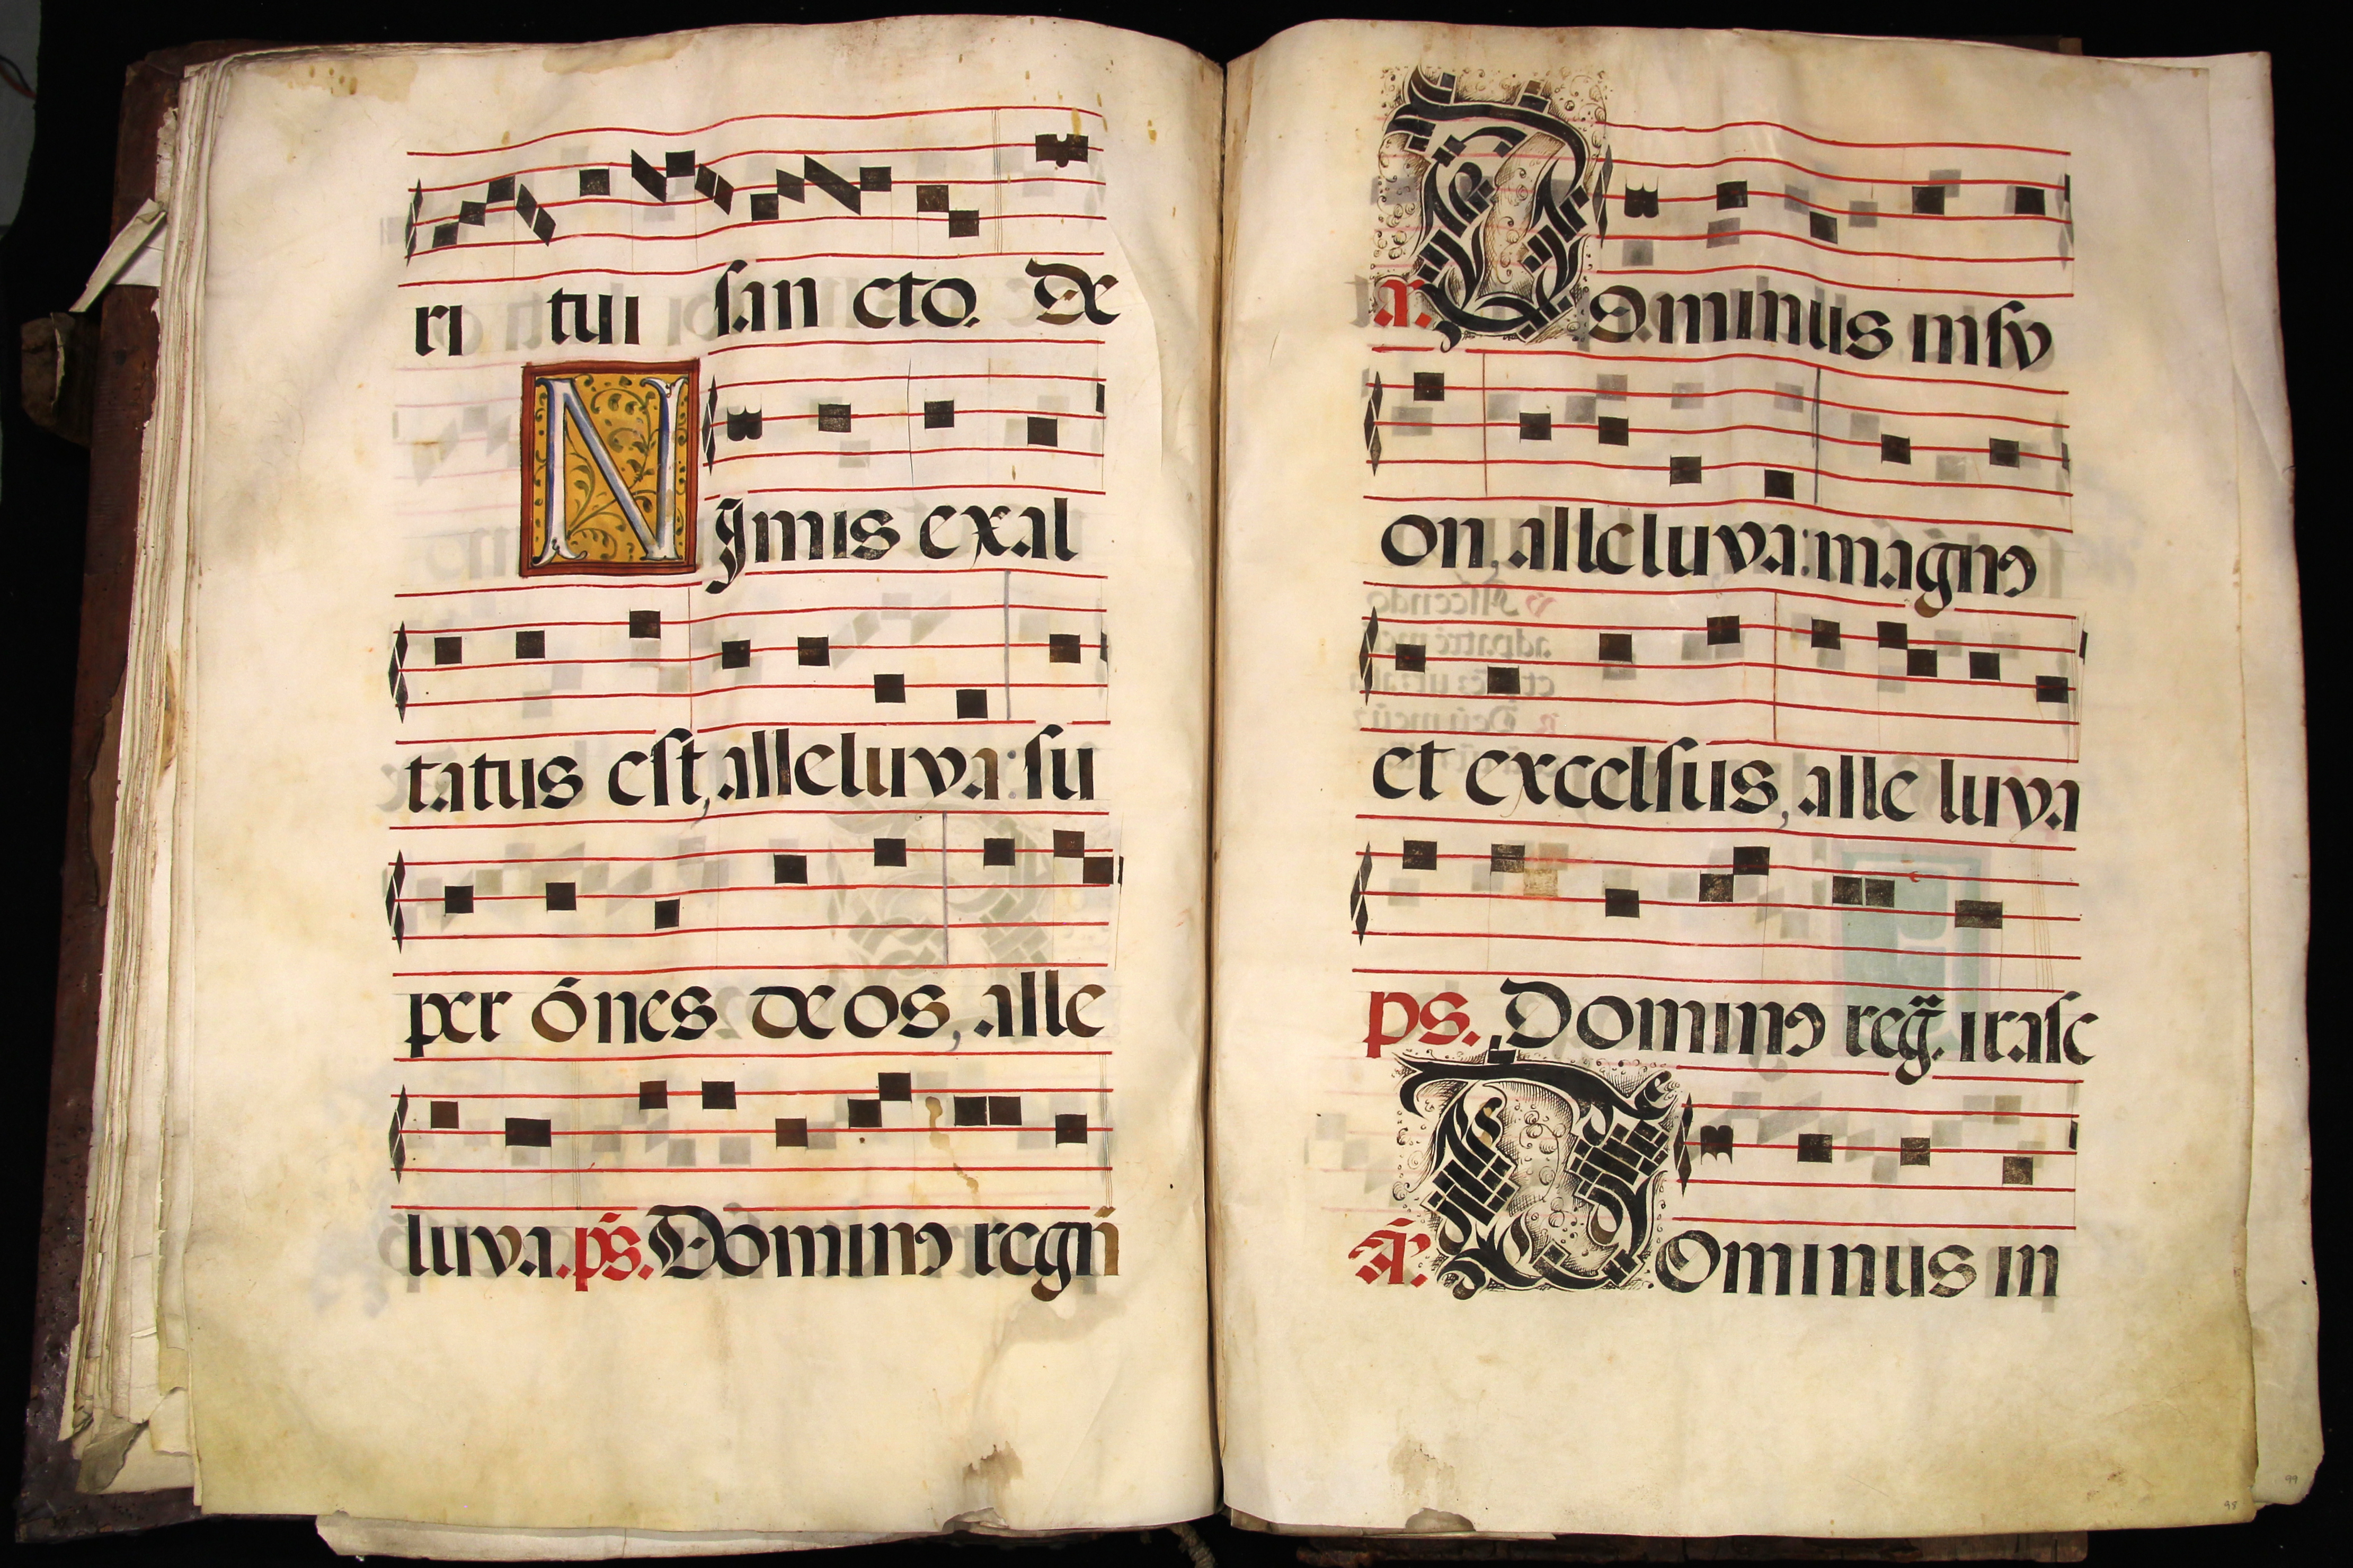 ri tui san cto. De
NJmis exal
tatus est, alleluya: su
per ōnes deos, alle
luya. ps. Domino regn̄
A. Dominus in sy
on, alleluya: magno
et excelsus, alle luya
ps. Domino reg̈. irasc
Ā. Dominus in
98
99